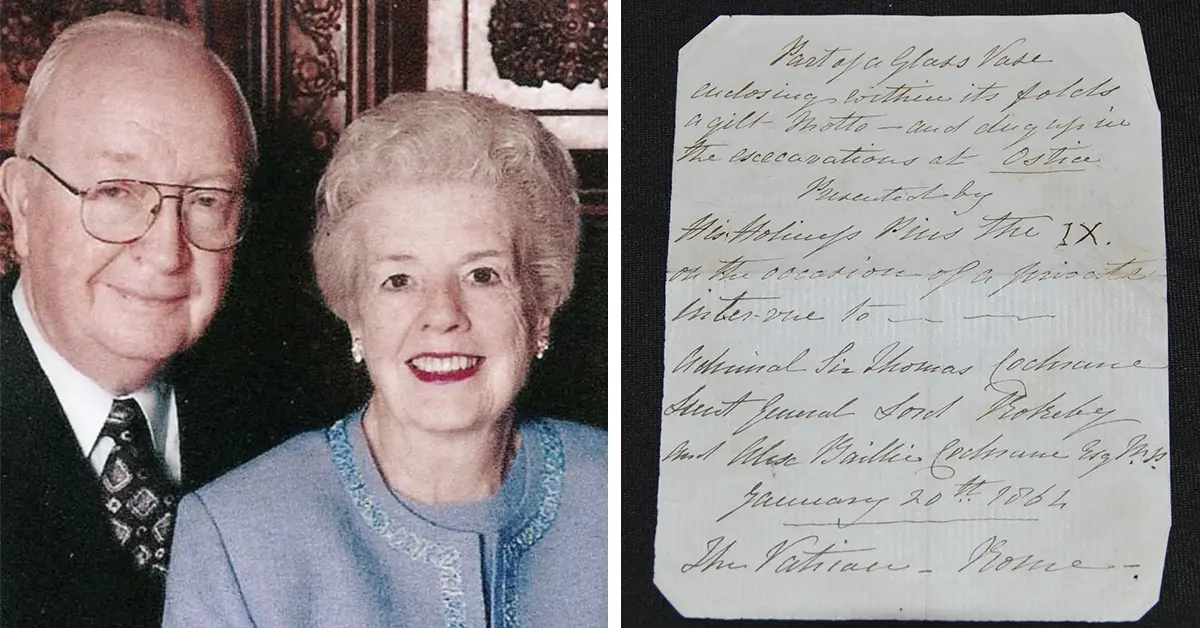 Part of a Glass Vase
enclosing within its folds
a gilt Motto – and dug up in
the excavations at Ostia
Presented by
His Holiness Pius the IX.
on the occasion of a private
intervue to — —
Admiral Sir Thomas Cochrane
Lieut General Lord Rokeby
and Alex Baillie Cochrane Esq M.P.
January 20th 1864
The Vatican – Rome –